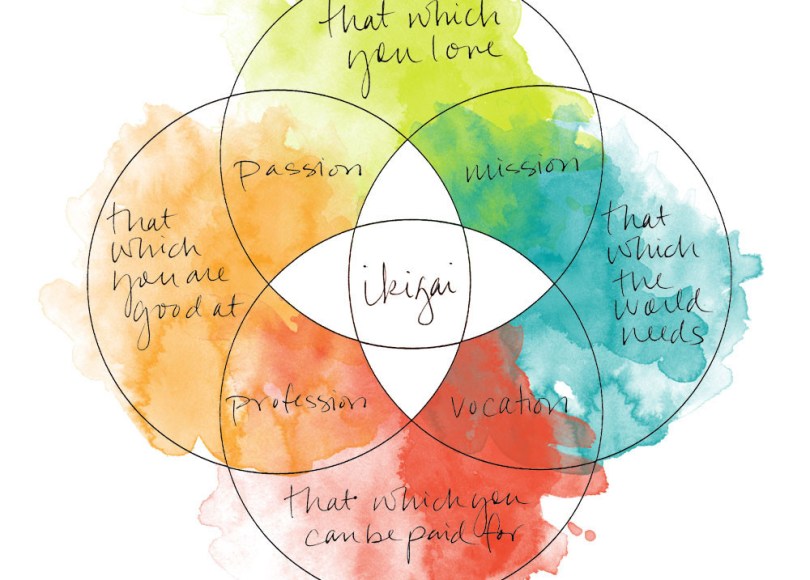 that which
you love
passion
mission
that
which
you are
good at
that
which
the
world
needs
ikigai
profession
vocation
that which you
can be paid for